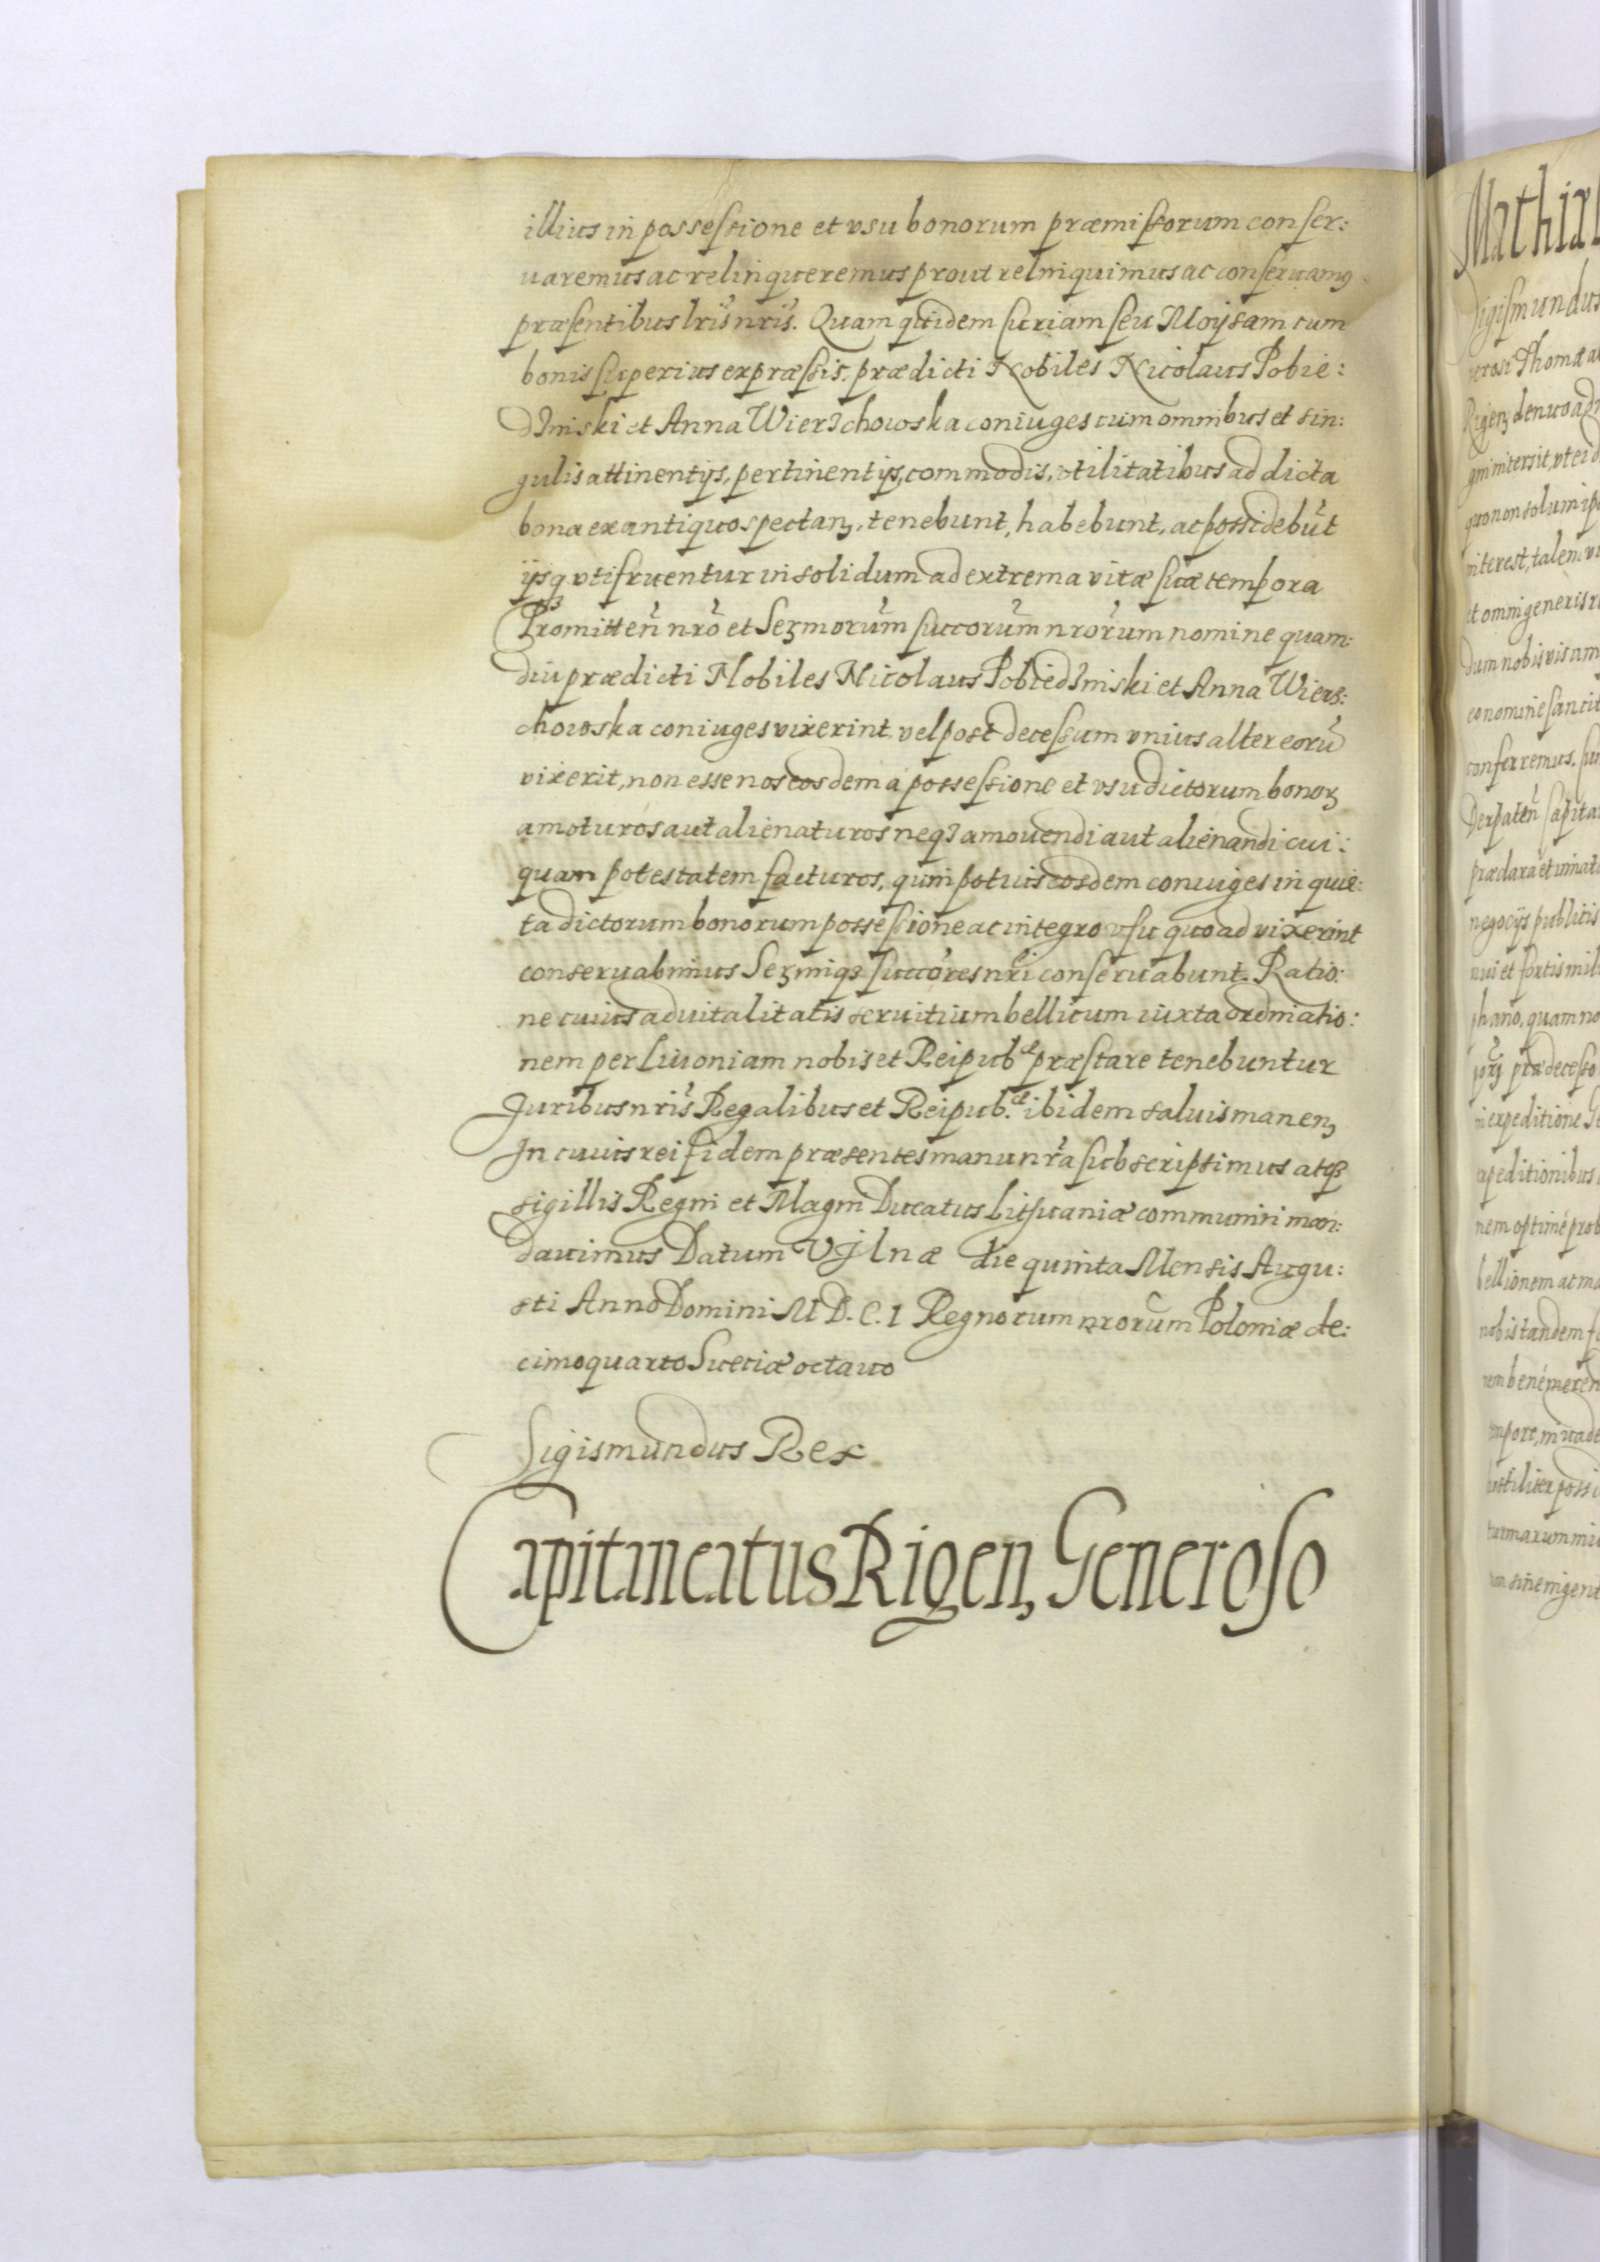 illius in possessione et vsu bonorum præmissorum conser:
uaremus ac relinqueremus prout relinquimus ac conseruamꝰ
præsentibus lr̃is nr̃is. Quam quidem curiam seu Moysam cum
bonis superius expræssis, prædicti Nobiles Nicolaus Pobie:
dzinski et Anna Wierzchowska coniuges cum omnibus et sin:
gulis attinentijs, pertinentijs, commodis, vtilitatibus ad dicta
bona ex antiquo spectan, tenebunt, habebunt, ac possidebũt
ijsqȝ vtifruentur in solidum ad extrema vitæ suæ tempora
Promitten̄ nr̃o et Sezmorum̃ succorum̃ nr̃orum nomine quam:
diu prædicti Nobiles Nicolaus Pobiedzinski et Anna Wierz:
chowska coniuges vixerint, vel post decessum vnius alter eorũ
vixerit, non esse nos eosdem a possessione et vsu dictorum bonoꝝ
amoturos aut alienaturos neqȝ amouendi aut alienandi cui:
quam potestatem facturos, quin potius eosdem coniuges in quie:
ta dictorum bonorum possessione ac integro vsu quoad vixerint
conseruabimus Sezmiqȝ succo͂res nr̃i conseruabunt. Ratio:
ne cuius aduitalitatis seruitium bellicum iuxta ordinatio:
nem per Liuoniam nobis et Reipubˡᵉ præstare tenebuntur
Juribus nr̃is Regalibus et Reipub.ᶜᵉ ibidem saluis manen
In cuius rei fidem præsentes manu nr̃a subscripsimus atqȝ
sigillis Regni et Magni Ducatus Lithuaniæ communiri man:
dauimus Datum Vjlnæ die quinta Mensis Augu:
sti Anno Domini M D. C. I Regnorum nr̃orum Poloniæ de:
cimoquarto Sueciæ octauo
Sigismundus Rex
Capitaneatus Rigen, Generoso
Mathiæ
Sigismundus
Thomæ
Rigen denuo
quo non solum
interest,
et omni generis
dum nobis
eo nomine
conferremus.
negocijs publicis
phano, quam no
prædecesso
expeditione
nem optime
bellionem ac
nobis tandem